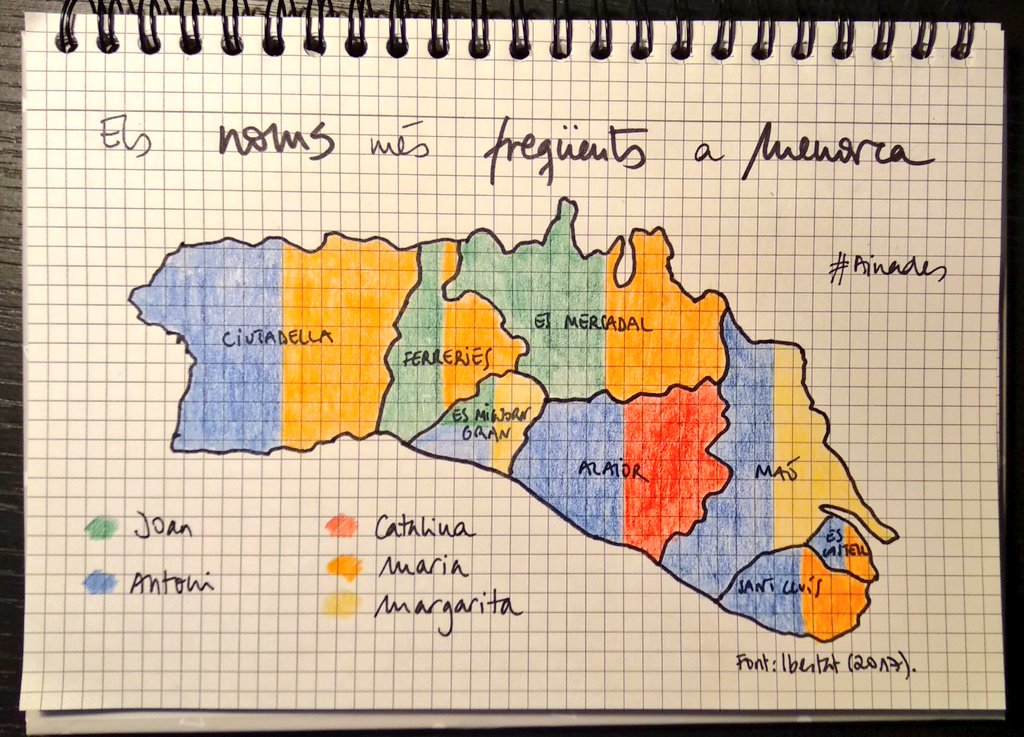 Els noms més freqüents a Menorca
#Ainades
CIUTADELLA
FERRERIES
ES MERCADAL
ES MIGJORN
GRAN
ALAIOR
MAÓ
ES
CASTELL
SANT LLUÍS
Joan
Antoni
Catalina
Maria
Margarita
Font: Ibestat (2017).